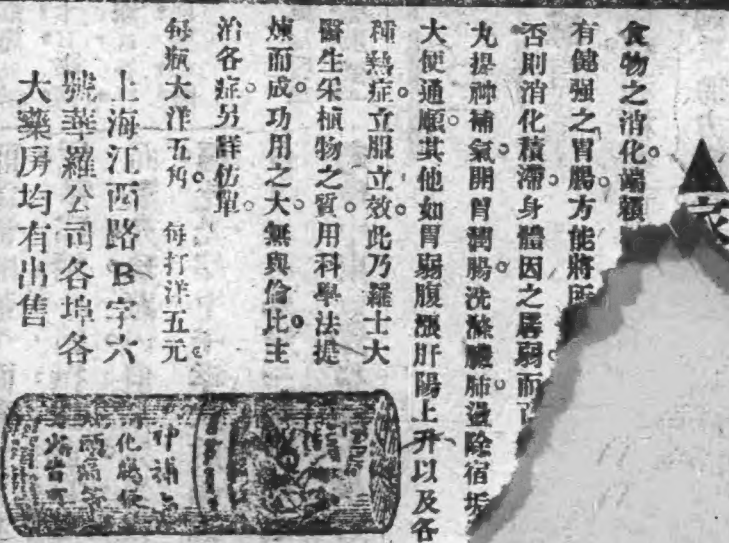 食物之消化。端賴
有健強之胃腸。方能將所
否則消化積滯。身體因之孱弱。而百
丸提神補氣。開胃潤腸。洗滌臟肺。盪除宿垢
大便通順。其他如胃弱腹漲肝陽上升以及各
種熱症。立服立效。此乃羅士大
醫生采植物之質。用科學法提
煉而成。功用之大。無與倫比。主
治各症。另詳仿單。
每瓶大洋五角。 每打洋五元。
上海江西路B字六
號華羅公司各埠各
大藥房均有出售